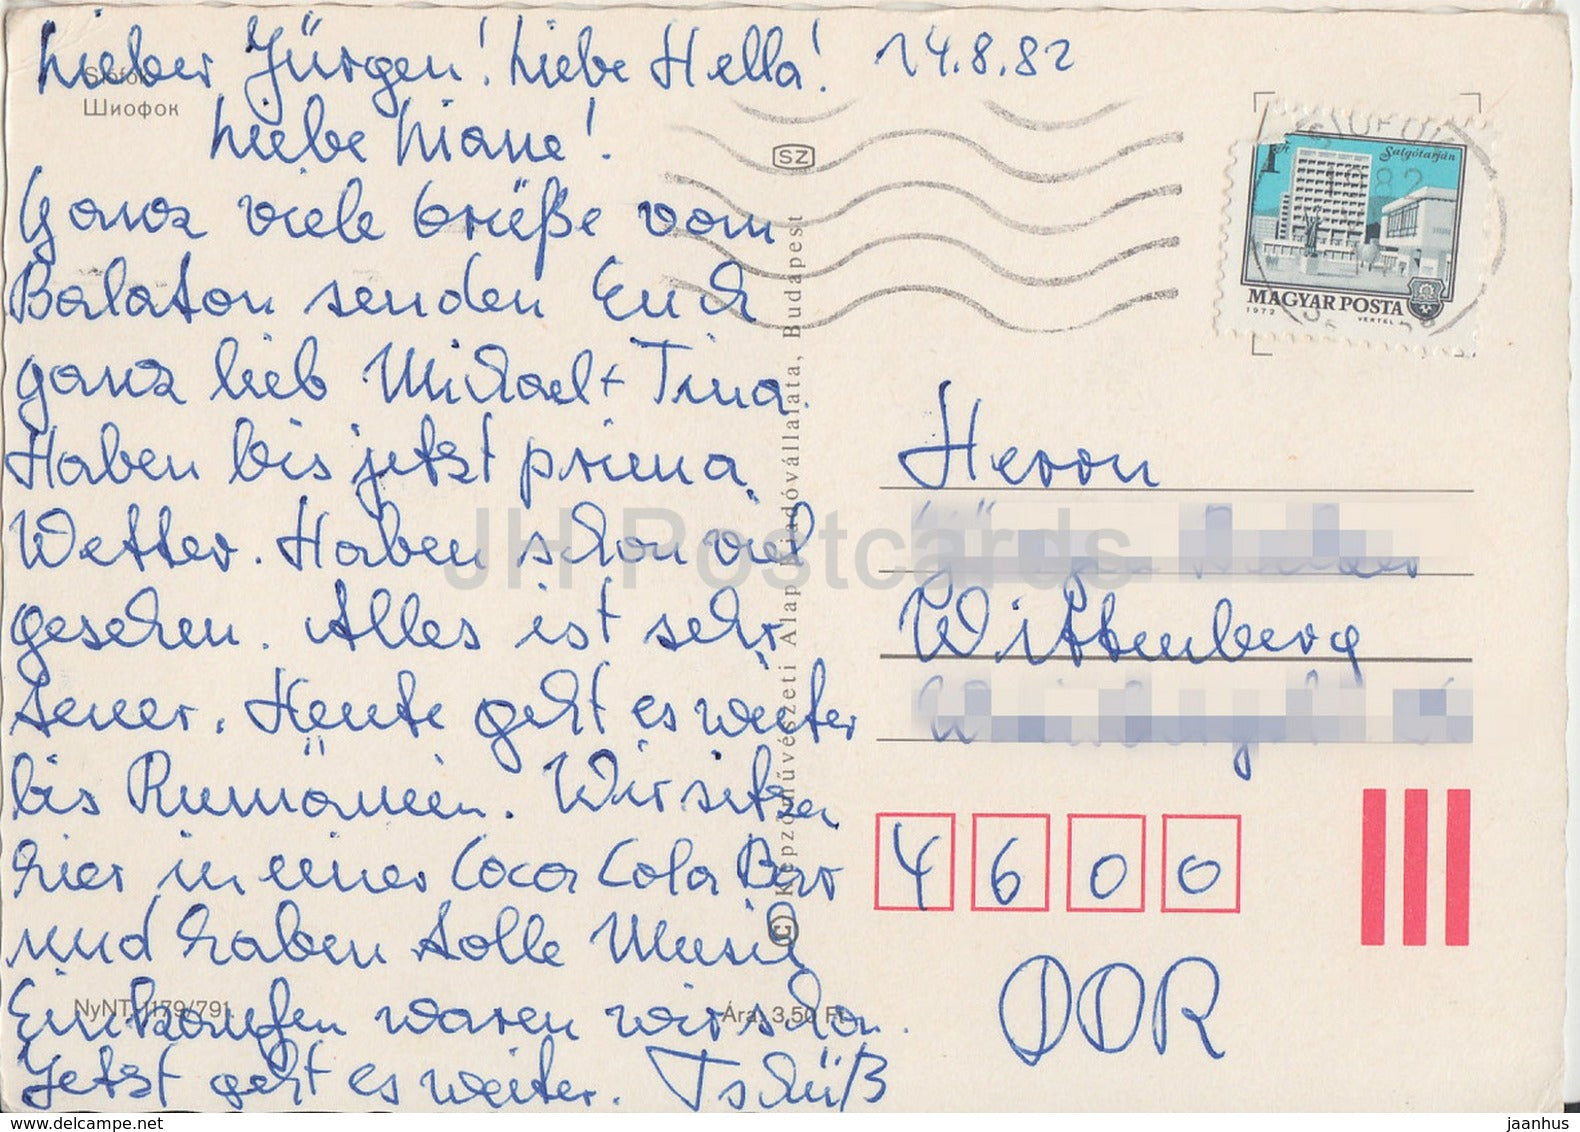 Lieber Jürgen! Liebe Hella! 14.8.82
Siófok
Шиофок
Liebe Liane!
Ganz viele Grüße vom
Balaton senden Euch
ganz lieb Michael + Tina.
Haben bis jetzt prima
Wetter. Haben schon viel
gesehen. Alles ist sehr
teuer. Heute geht es weiter
bis Rumänien. Wir sitzen
hier in einer Coca Cola Bar
und haben tolle Musik
Einkaufen waren wir schon.
Jetzt geht es weiter. Tschüß
NyNT 1179/791.
Ára: 3,50 Ft
© Képzőművészeti Alap Kiadóvállalata, Budapest
SZ
1 Ft
Salgótarján
1982
MAGYAR POSTA
1972
VERTEL
Herrn
Wittenberg
4600
DDR
JH Postcards
delcampe.net
jaanhus